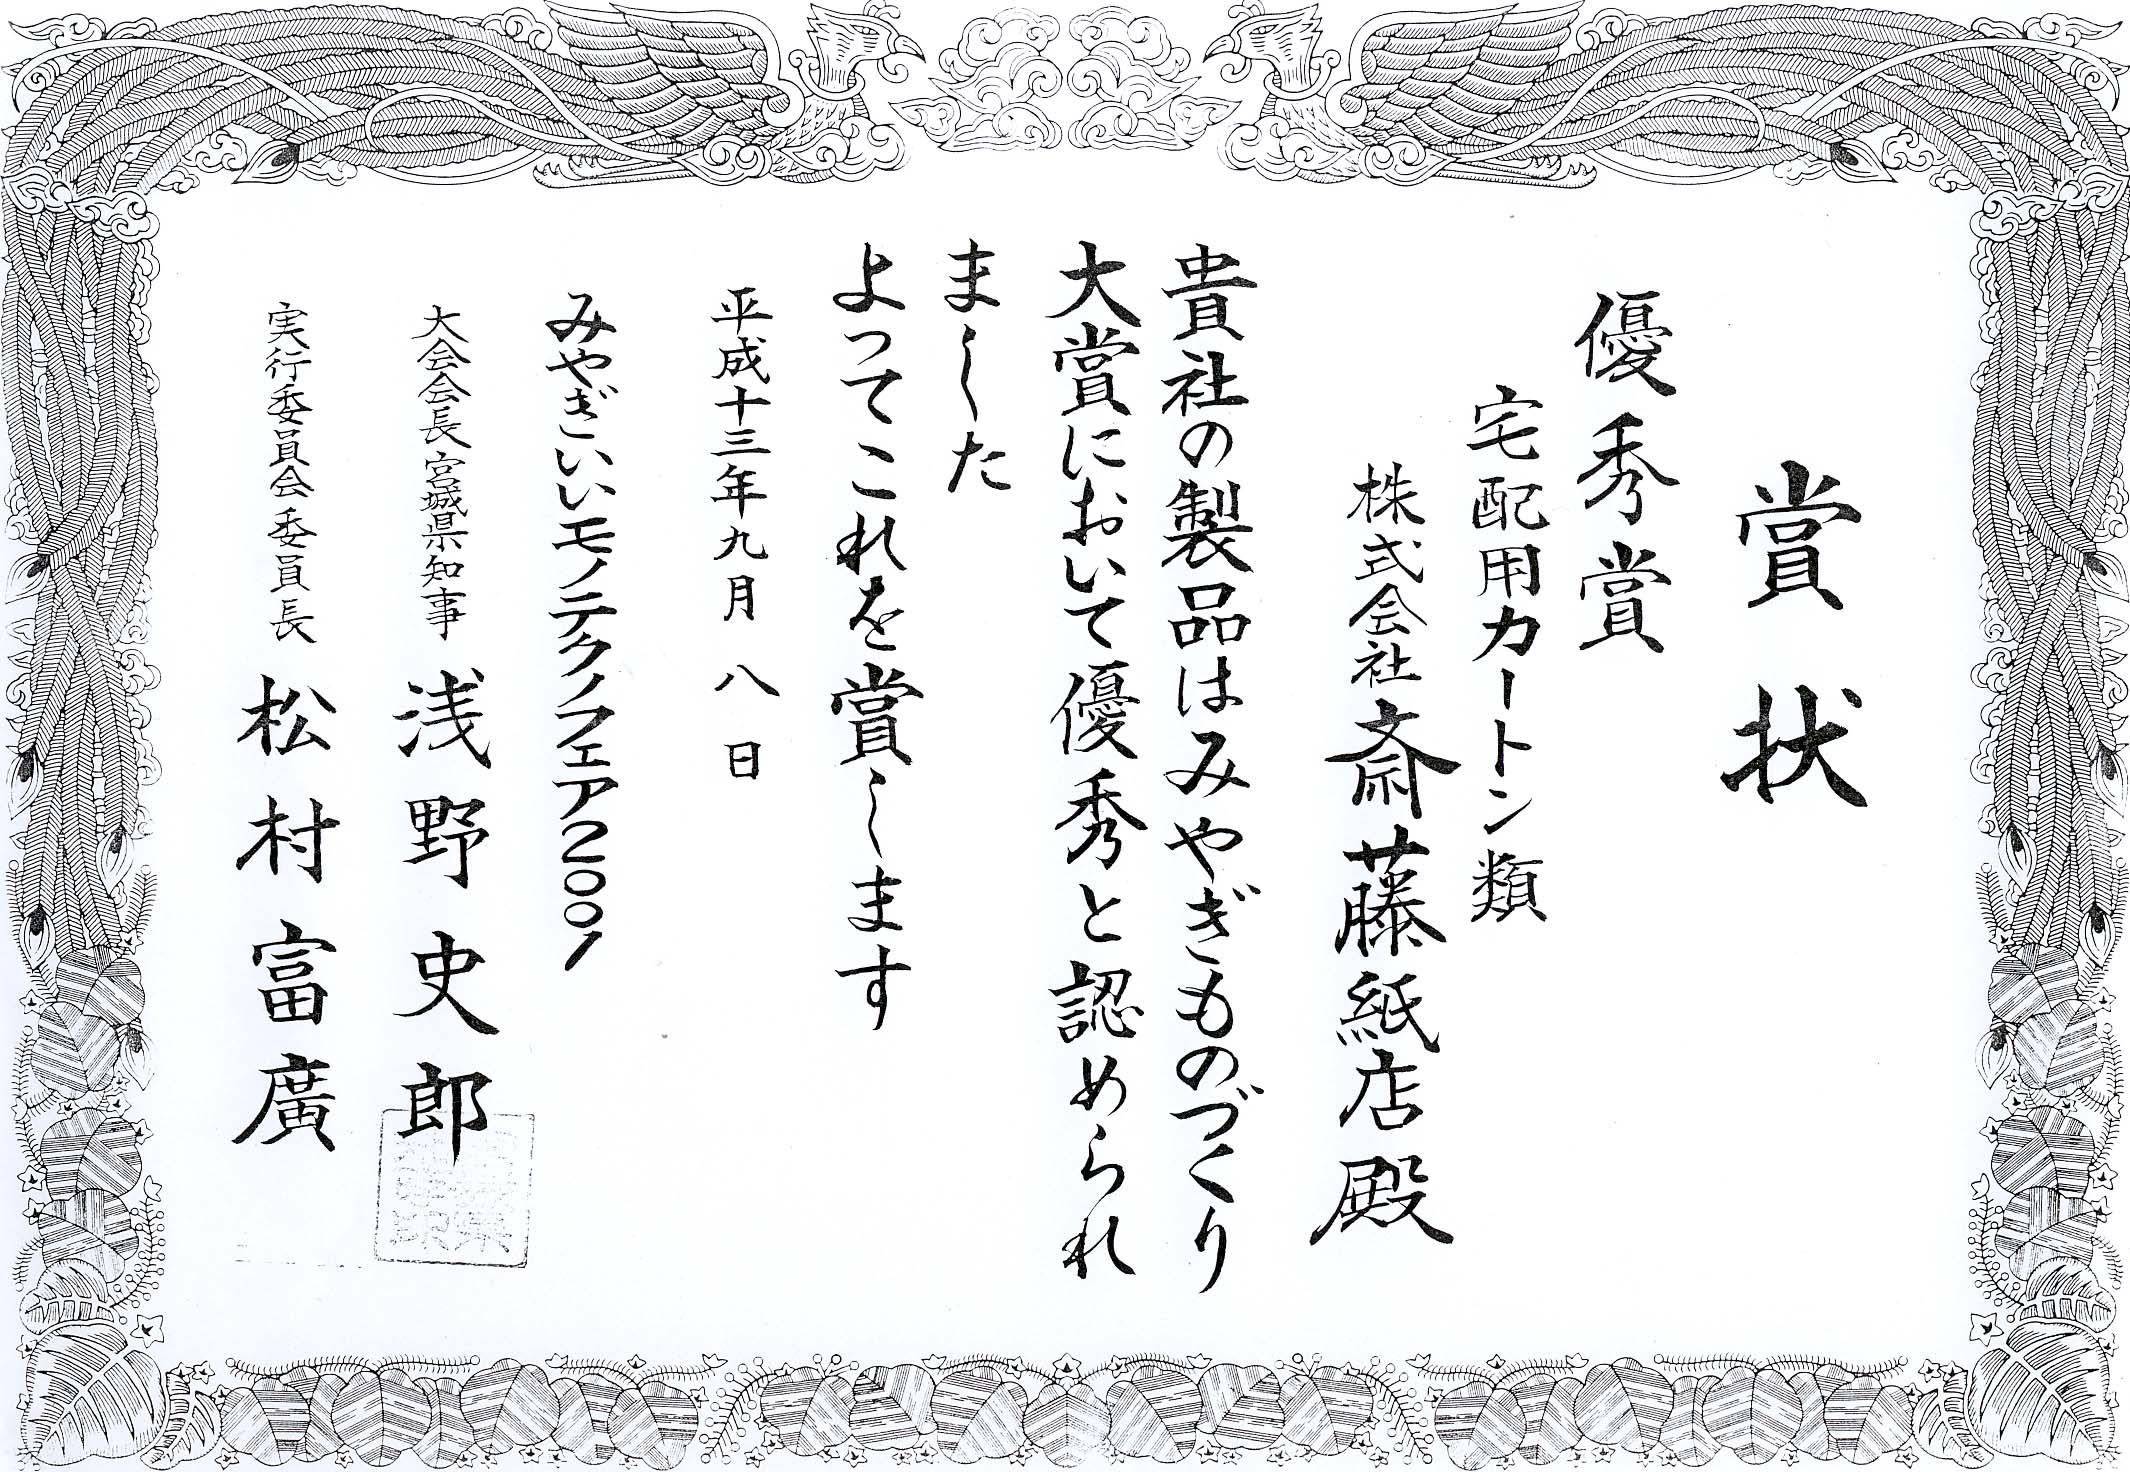 賞状
優秀賞
宅配用カートン類
株式会社斎藤紙店殿
貴社の製品はみやぎものづくり
大賞において優秀と認められ
ました
よってこれを賞します
平成十三年九月八日
みやぎいいモノテクノフェア2001
大会会長宮城県知事 浅野史郎
実行委員会委員長 松村富廣